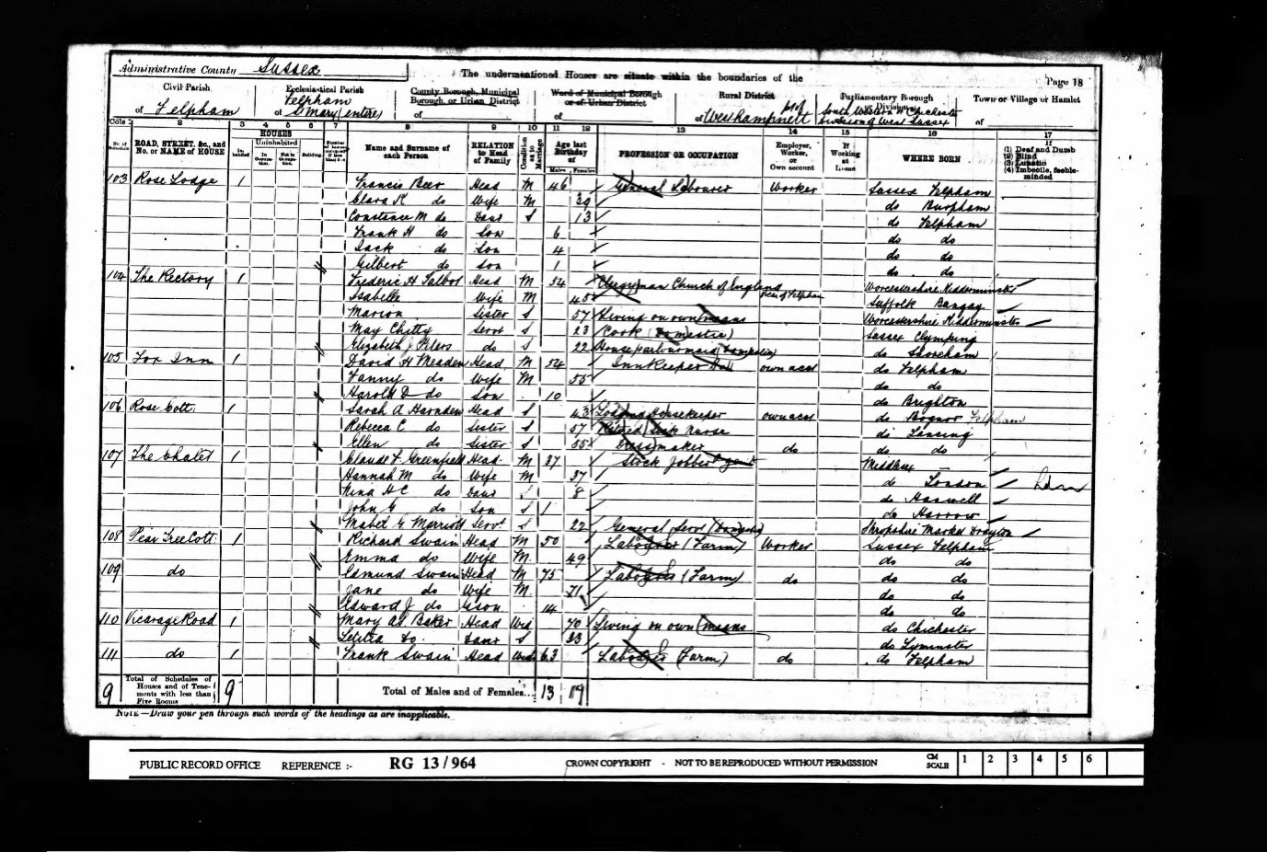 Administrative County Sussex
The undermentioned Houses are situate within the boundaries of the
Page 18
Civil Parish of Felpham
Ecclesiastical Parish of Felpham St Mary (entire)
County Borough, Municipal Borough, or Urban District of
Ward of Municipal Borough or of Urban District of
Rural District of West Hampnett
Parliamentary Borough or Division of South Western or Chichester Division of West Sussex
Town or Village or Hamlet of
Cols. 1 2 3 4 5 6 7 8 9 10 11 12 13 14 15 16 17
No. of Schedule
ROAD, STREET, &c., and No. or NAME of HOUSE
HOUSES
Inhabited
Uninhabited
In Occupation
Not in Occupation
Building
Name and Surname of each Person
RELATION to Head of Family
Condition as to Marriage
Age last Birthday of
Males Females
PROFESSION OR OCCUPATION
Employer, Worker, or Own account
If Working at Home
WHERE BORN
If (1) Deaf and Dumb (2) Blind (3) Lunatic (4) Imbecile, feeble-minded
103 Rose Lodge 1 Francis Beer Head M 46 General Labourer Worker Sussex Felpham
Clara K do Wife M 39 do Burpham
Constance M do Daur S 13 do Felpham
Frank H do Son 6 do do
Jack do Son 4 do do
Gilbert do Son 1 do do
104 The Rectory 1 Frederic H Talbot Head M 54 Clergyman Church of England Worcestershire Kidderminster
Isabelle Wife M 45 Suffolk Bungay
Marion Sister S 57 Living on own means Worcestershire Kidderminster
May Chitty Servt S 23 Cook (Domestic) Sussex Clymping
Elizabeth J do S 22 House parlour maid (Domestic) do Shoreham
105 Fox Inn 1 David H Meaden Head M 54 Innkeeper own acct do Felpham
Fanny do Wife M 55 do do
Harold D do Son 10 do Brighton
106 Rose Cott. 1 Sarah A Harnden Head S 43 Housekeeper own acct do Bognor Felpham
Rebecca C do Sister S 57 Retired Sick Nurse do Lancing
Ellen do Sister S 55 Dressmaker do do do
107 The Chalet 1 Claude F Greenfield Head M 37 Stock Jobber Agent Middlesex
Hannah M do Wife M 37 do London
Nina H C do Daur 8 do
John G do Son S 1 do Harrow
Mabel G Merriott Servt S 22 General Servt (Domestic) Shropshire Market Drayton
108 Pear Tree Cott. 1 Richard Swain Head M 50 Labourer (Farm) Worker Sussex Felpham
Emma do Wife M 49 do do
109 do 1 Edmund Swain Head M 75 Labourer (Farm) do do do
Jane do Wife M 71 do do
Edward J do Gson 14 do do
110 Vicarage Road 1 Mary A Baker Head Wid 70 Living on own means do Chichester
Letitia do. Daur S 33 do Lyminster
111 do 1 Frank Swain Head Widr 63 Labourer (Farm) do do Felpham
9 Total of Schedules of Houses and of Tenements with less than Five Rooms 9 Total of Males and of Females... 13 19
NOTE.—Draw your pen through such words of the headings as are inapplicable.
PUBLIC RECORD OFFICE REFERENCE :- RG 13/964 CROWN COPYRIGHT - NOT TO BE REPRODUCED WITHOUT PERMISSION CM SCALE 1 2 3 4 5 6